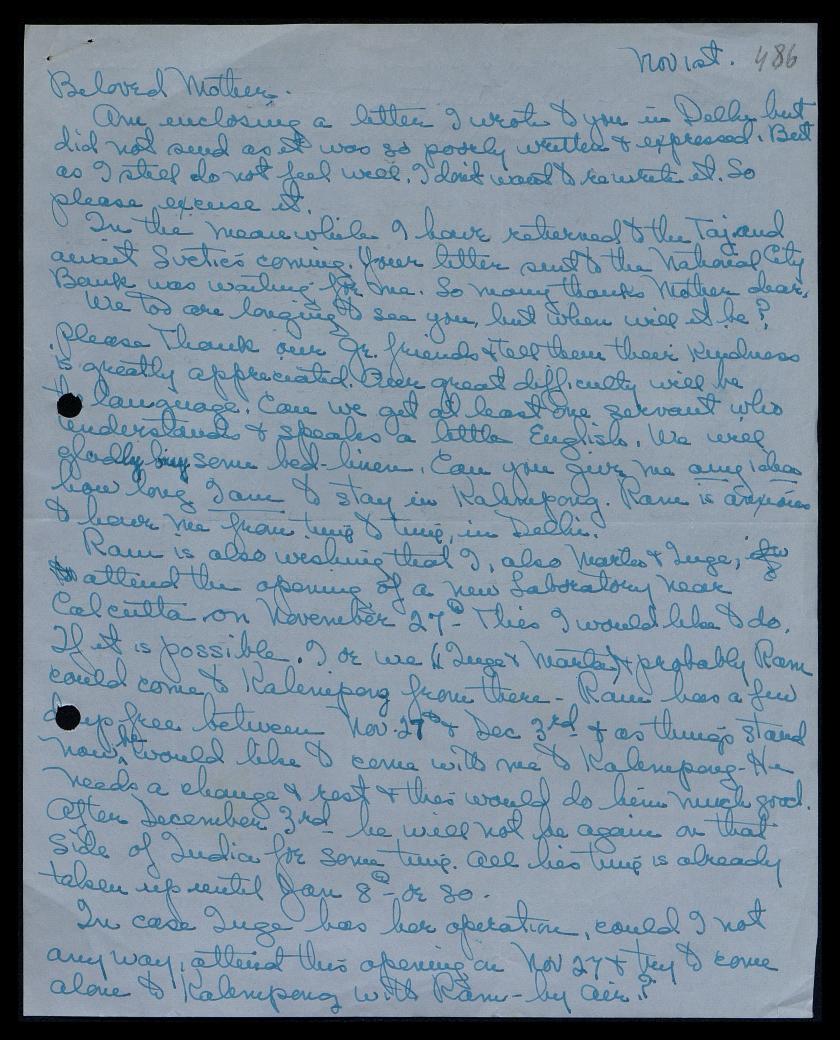 Nov 1st. 486
Beloved Mother.
Am enclosing a letter I wrote to you in Delhi but
did not send as it was so poorly written & expressed. But
as I still do not feel well, I don't want to rewrite it. So
please, excuse it.
In the meanwhile I have returned to the Taj and
await Svetie's coming. Your letter sent to the National City
Bank was waiting for me. So many thanks Mother dear,
We too are longing to see you, but when will it be?
Please Thank our Gr. friends & tell them their kindness
is greatly appreciated. Our great difficulty will be
the language. Can we get at least one servant who
understands & speaks a little English. We will
gladly buy some bed-linen. Can you give me any idea
how long I am to stay in Kalimpong. Ram is anxious
to have me from time to time, in Delhi.
Ram is also wishing that I, also Marta & Inge,
attend the opening of a new Laboratory near
Calcutta on November 27th This I would like to do.
If it is possible. I or we (Inge & Marta) & probably Ram
could come to Kalimpong from there - Ram has a few
days free between Nov. 27th & Dec 3rd & as things stand
now, he would like to come with me to Kalimpong - He
needs a change & rest & this would do him much good.
After December 3rd he will not be again on that
side of India for some time. All his time is already
taken up until Jan 8th or so.
In case Inge has her operation, could I not
any way, attend this opening on Nov 27 & try to come
alone to Kalimpong with Ram - by air?